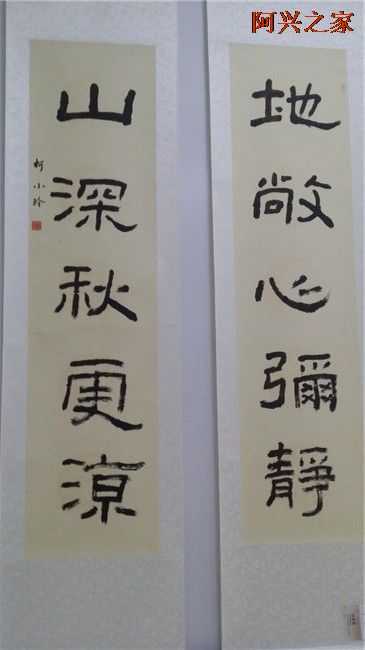 阿兴之家
地敞心彌靜
山深秋更凉
柯小玲